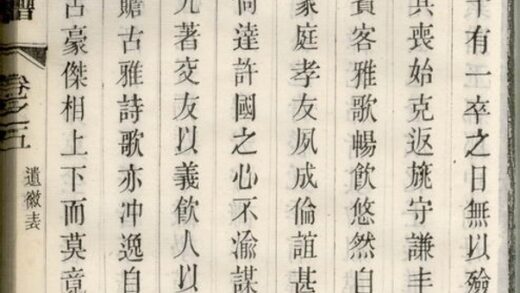 十有一卒之日無以殮
兵喪始克返旐守謙丰
賓客雅歌暢飲悠然自
家庭孝友夙成倫誼甚
尚達許國之心不渝謀
尤著交友以義飲人以
贍古雅詩歌亦冲逸自
古豪傑相上下而莫竟
卷之五
遺徽表